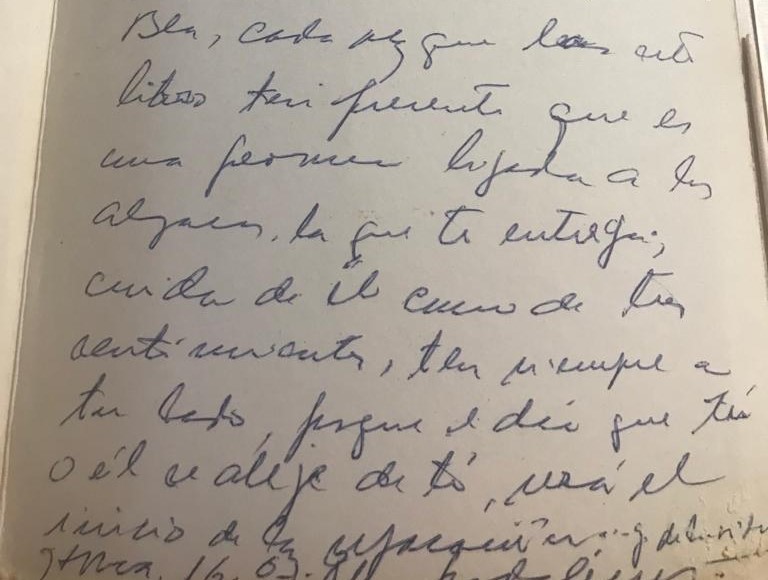 Bea, cada vez que leas este
libro ten presente que es
una persona ligada a las
algas, la que te entrega;
cuida de él como de tus
sentimientos, ten siempre a
tu lado, porque el día que tú
o él se aleje de tí, será el
inicio de la
16. 03.